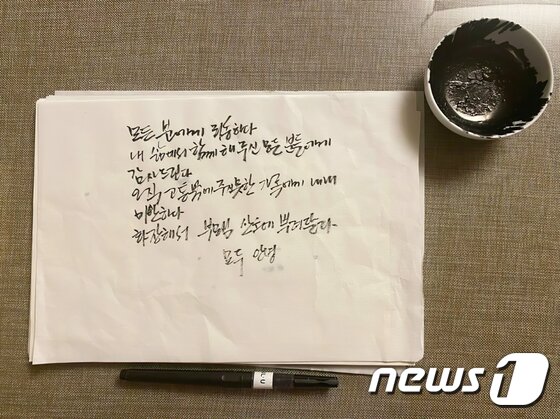 모든 분에게 죄송하다
내 삶에서 함께 해 주신 모든 분들에게
감사드린다
오직, 고통밖에 주지 못한 가족에게 내내
미안하다
화장해서 부모님 산소에 뿌려달라.
모두 안녕
news1